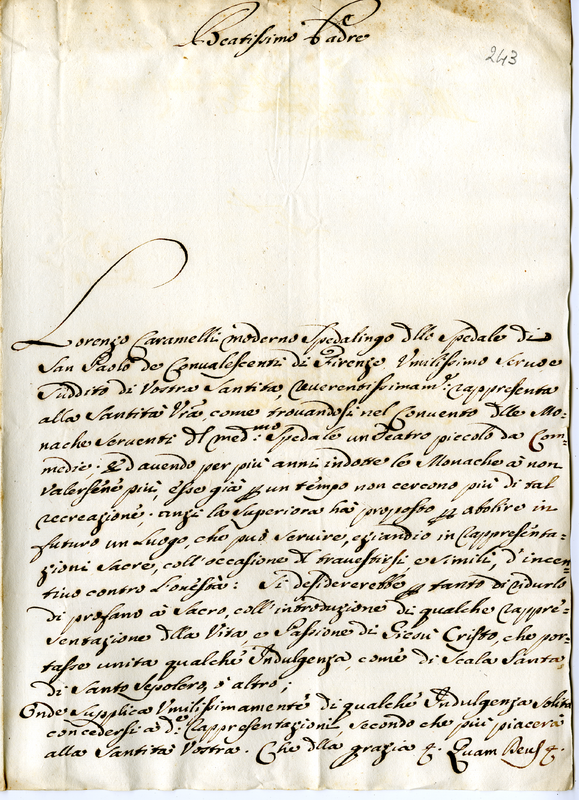 Beatissimo Padre
243
Lorenzo Caramelli moderno Spedalingo dllo Spedale di
San Paolo de Convalescenti di Firenze, Vmilissimo Servo e
Suddito di Vostra Santità, Reverentissimam.te rappresenta
alla Santità V̄ra, come trovandosi nel Convento dlle Mo=
nache Serventi dl med.mo Spedale un Teatro piccolo da Com=
medie: Ed avendo per più anni indotte le Monache à non
valersene più, esse già p un tempo non cercono più di tal
recreazione; anzi la Superiora hà proposto p abolire in
futuro un Luogo, che può servire, eziandio in Rappresenta=
zioni Sacre, coll'occasione dl travestirsi, e simili, d'incen=
tivo contro l'onestà: Si desidererebbe p tanto di ridurlo
di profano à Sacro, coll'introduzione di qualche rappre=
sentazione dlla Vita, e Passione di Giesù Cristo, che por=
tasse unita qualche Indulgenza, come di Scala Santa,
di Santo Sepolcro, ò altro;
Onde Supplica Vmilissimamente di qualche Indulgenza solita
concedersi à d.e Rappresentazioni, secondo che più piacerà
alla Santità Vostra. Che dlla grazia &. Quam Deus &.